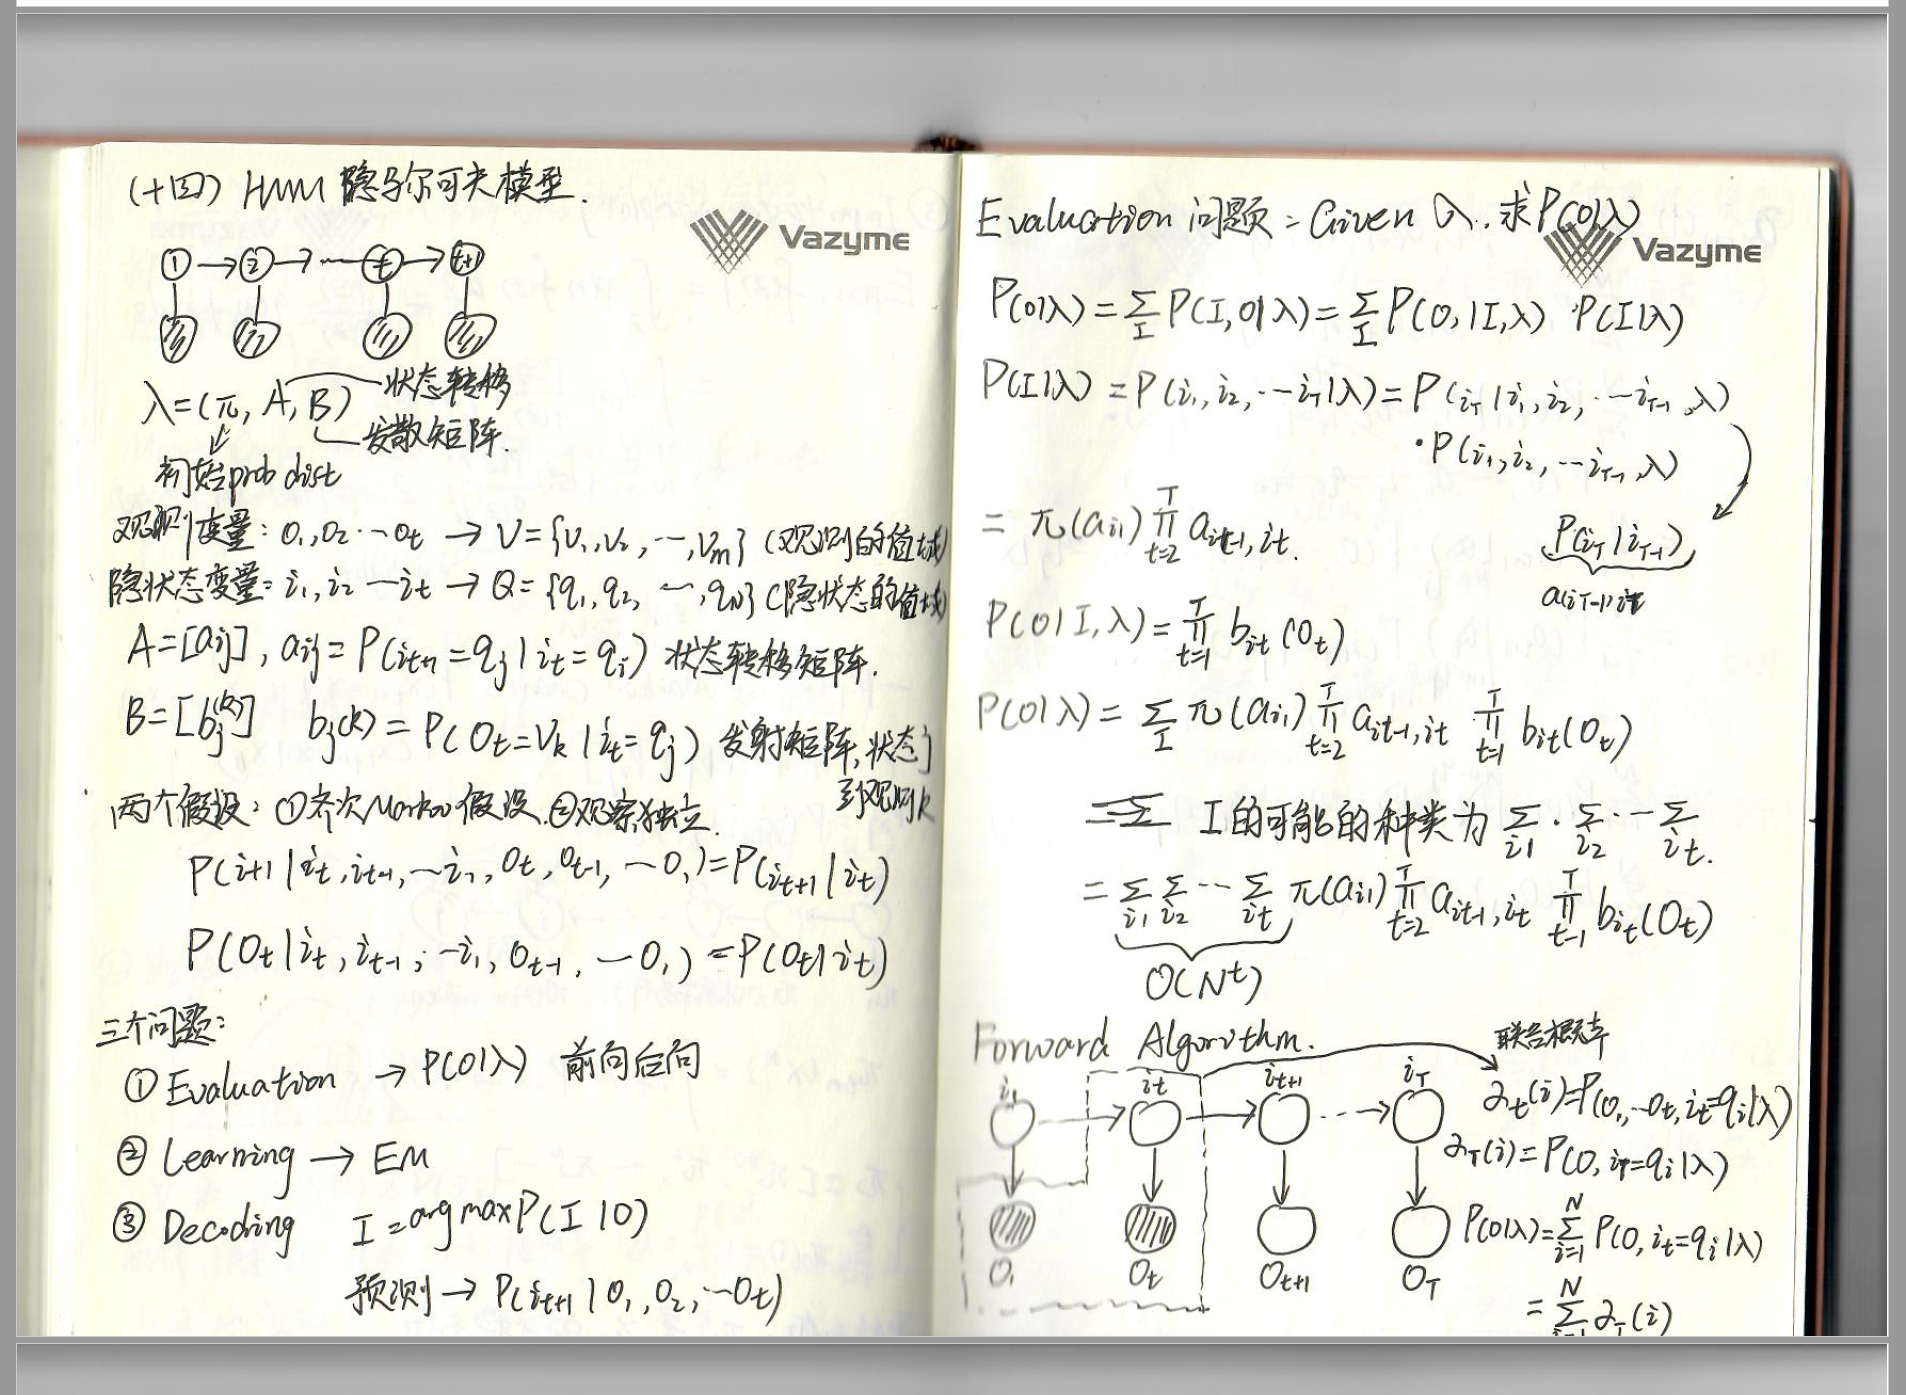 (十四) HMM 隐马尔可夫模型.
Vazyme
① → ② → ···— t → t+1
λ=(π, A, B) 状态转移
发散矩阵.
初始prob dist
观测变量: O1,O2···Ot → V={V1,V2,···,Vm} (观测的值域)
隐状态变量: i1,i2 —it → Q={q1,q2, ···,qN} (隐状态的值域)
A=[aij], aij=P(it+1=qj|it=qi) 状态转移矩阵.
B=[bj(k)] bj(k)=P(Ot=Vk|it=qj) 发射矩阵,状态j
到观测k
两个假设: ①齐次Markov假设.②观察独立.
P(i+1|it,it-1,···i1,Ot,Ot-1,···O1)=P(it+1|it)
P(Ot|it,it-1,···i1,Ot-1,···O1)=P(Ot|it)
三个问题:
① Evaluation → P(O|λ) 前向后向
② Learning → EM
③ Decoding I=argmaxP(I|O)
预测 → P(it+1|O1,O2,···Ot)
Evaluation 问题: Given λ. 求P(O|λ)
Vazyme
P(O|λ)=∑I P(I,O|λ)=∑I P(O,|I,λ)·P(I|λ)
P(I|λ)=P(i1,i2,···iT|λ)=P(iT|i1,i2,···iT-1,λ)
·P(i1,i2,···iT-1,λ)
= π(ai1) ∏t=2T ait-1,it.
P(iT|iT-1)
a(iT-1)iT
P(O|I,λ)=∏t=1T bit(Ot)
P(O|λ)=∑I π(ai1) ∏t=2T ait-1,it ∏t=1T bit(Ot)
I的可能的种类为 ∑i1·∑i2···∑it.
=∑i1∑i2···∑it π(ai1) ∏t=2T ait-1,it ∏t=1T bit(Ot)
O(N^t)
Forward Algorithm.
联合概率
i1 it it+1 iT
αt(i)=P(O1,···Ot,it=qi|λ)
αT(i)=P(O,iT=qi|λ)
P(O|λ)=∑i=1N P(O,it=qi|λ)
O1 Ot Ot+1 OT
=∑i=1N αT(i)